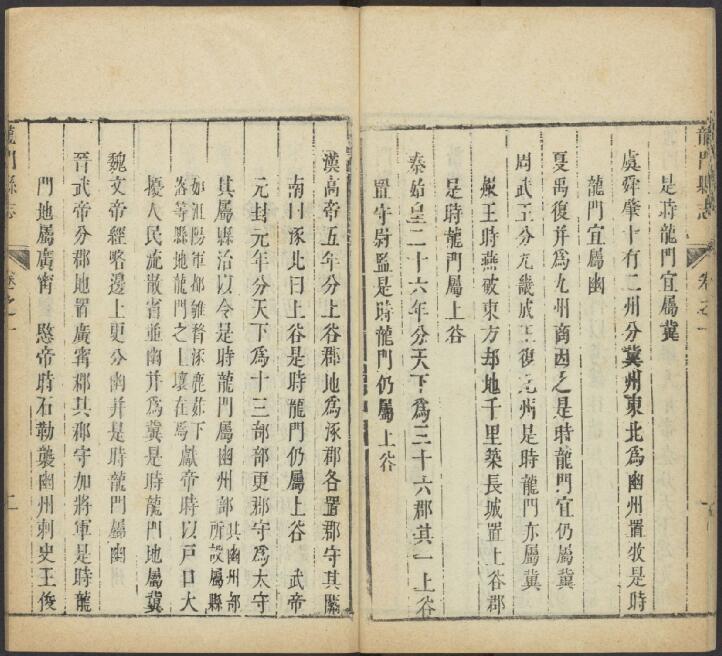 龍門縣志 卷之一
是時龍門宜屬冀
虞舜肇十有二州分冀州東北爲幽州置牧是時
龍門宜屬幽
夏禹復并爲九州商因之是時龍門宜仍屬冀
周武王分九畿成王復九州是時龍門亦屬冀
赧王時燕破東方却地千里築長城置上谷郡
是時龍門屬上谷
秦始皇二十六年分天下爲三十六郡其一上谷
置守尉監是時龍門仍屬上谷
漢高帝五年分上谷郡地爲涿郡各置郡守其關
南曰涿北曰上谷是時龍門仍屬上谷 武帝
元封元年分天下爲十三部部更郡守爲太守
其屬縣治以令是時龍門屬幽州部其幽州部所設屬縣
如沮陽軍都雊瞀涿鹿茹下落等縣地龍門之土壤在焉獻帝時以戸口大
擾人民流散省並幽并爲冀是時龍門地屬冀
魏文帝經略邊上更分幽并是時龍門屬幽州
晉武帝分郡地置廣甯郡其郡守加將軍是時龍
門地屬廣甯 愍帝時石勒襲幽州刺史王俊
龍門縣志 卷之一 二